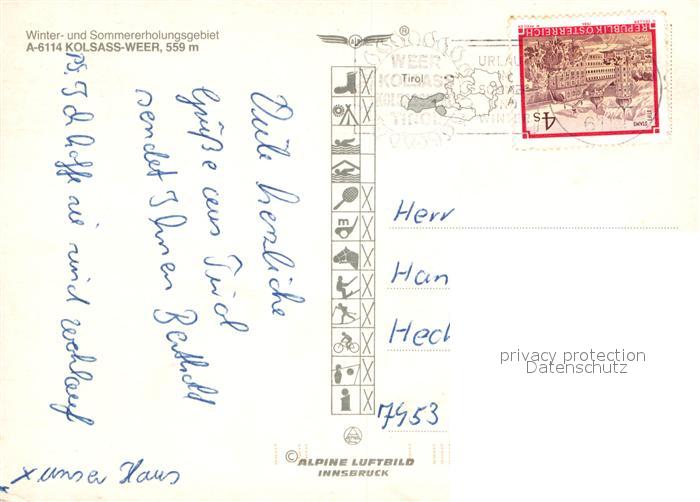 Winter- und Sommererholungsgebiet
A-6114 KOLSASS-WEER, 559 m
Viele herzliche
Grüße aus Tirol
sendet Ihnen Berthold
PS. Ich hoffe sie sind wohlauf
x unser Haus
WEER
KOLSASS
TIROL
Tirol
URLAU
REPUBLIK ÖSTERREICH
4 S
STIFT
STAMS
m
i
Herr
Han
Hech
7453
privacy protection
Datenschutz
© ALPINE LUFTBILD
INNSBRUCK